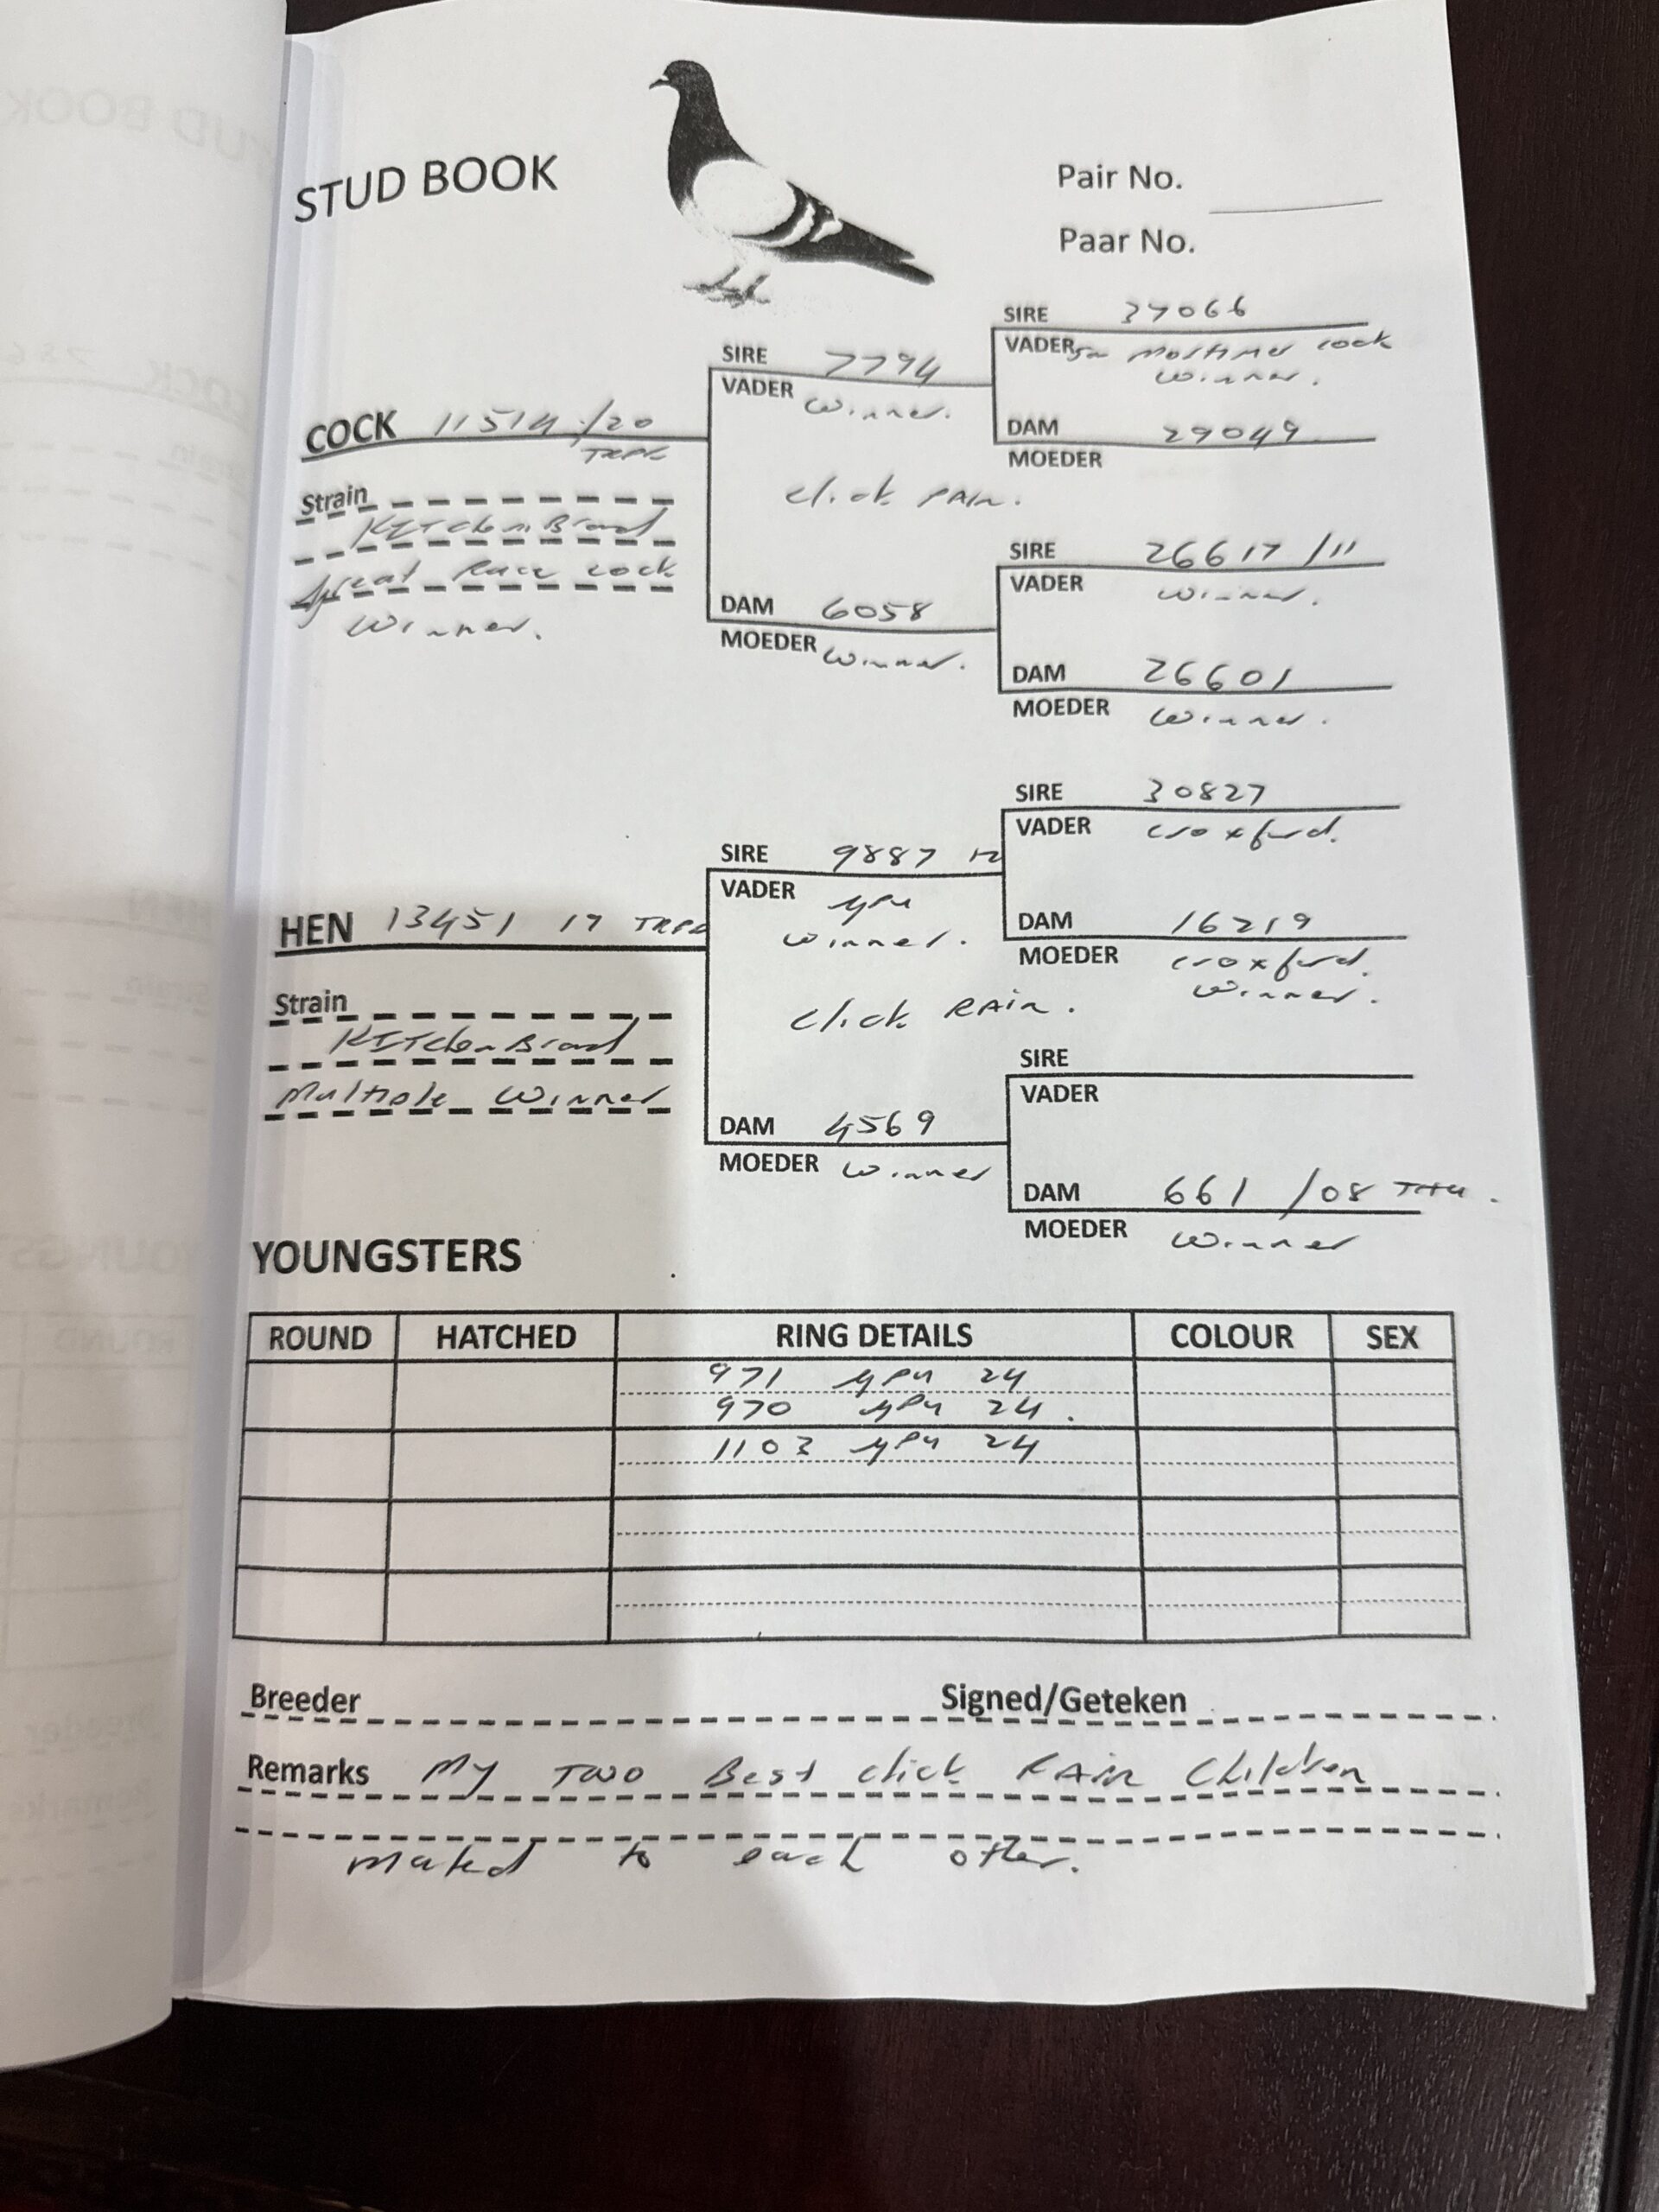 STUD BOOK
Pair No.
Paar No.
SIRE 37066
VADER Mortimer cock
Winner.
SIRE 7794
VADER Winner.
COCK 11514/20
DAM 29049
MOEDER
Click PAir.
Strain
KITchen Brand
Great Race cock
Winner.
SIRE 26617/11
VADER Winner.
DAM 6058
MOEDER Winner.
DAM 26601
MOEDER Winner.
SIRE 30827
VADER Croxford.
SIRE 9887 12
VADER
Winner.
HEN 13451 17
DAM 16219
MOEDER Croxford.
Winner.
Click PAir.
Strain
KITchen Brand
Multiple Winner
SIRE
VADER
DAM 4569
MOEDER Winner
DAM 661 /08
MOEDER Winner
YOUNGSTERS
ROUND HATCHED RING DETAILS COLOUR SEX
971 24
970 24.
1103 24
Breeder Signed/Geteken
Remarks My TWO Best click PAir Children
mated to each other.